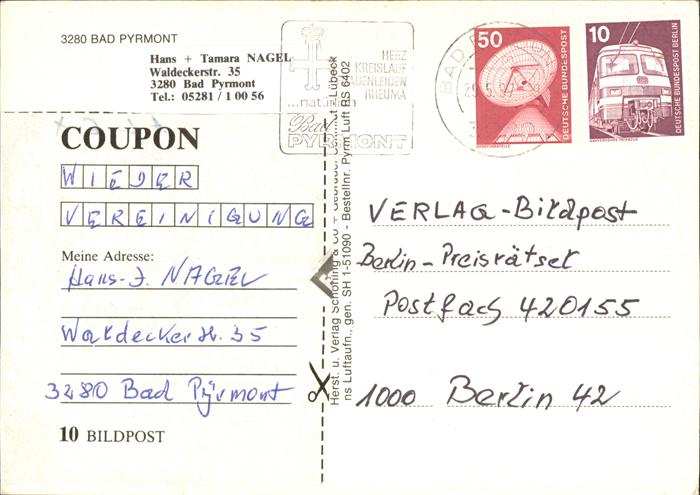 3280 BAD PYRMONT
Hans + Tamara NAGEL
Waldeckerstr. 35
3280 Bad Pyrmont
Tel.: 05281 / 1 00 56
HERZ
KREISLAUF
RHEUMA
...natürlich
Bad
PYRMONT
BAD
50
DEUTSCHE BUNDESPOST
ERDEFUNKSTELLE
10
DEUTSCHE BUNDESPOST BERLIN
COUPON
WIEDER
VEREINIGUNG
Meine Adresse:
Hans-J. NAGEL
Waldeckerstr. 35
3280 Bad Pyrmont
10 BILDPOST
Herst. u. Verlag Schöning & Co + Gebrüder Lübeck
ns Luftaufn., gen. SH 1-51090 - Bestellnr. Pyrm. Luft RS 6402
VERLAG-Bildpost
Berlin-Preisrätsel
Postfach 420155
1000 Berlin 42